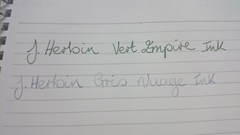 J. Herbin Vert Empire Ink
J. Herbin Gris Nuage Ink